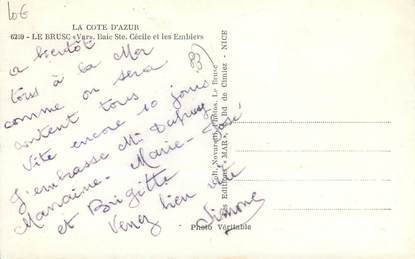 10€
LA COTE D'AZUR
6289 - LE BRUSC «Var». Baie Ste. Cécile et les Embiers
a bientôt
tous à la Mer
comme on sera
content tous
Vite encore 10 jours
J'embrasse Mr Dupuy
Marraine - Marie - José
et Brigitte
Venez bien vite
Simone
Coll. Novarelli, Photos. Le Brusc
Les Editions « MAR », Bd de Cimiez - NICE
Photo Véritable